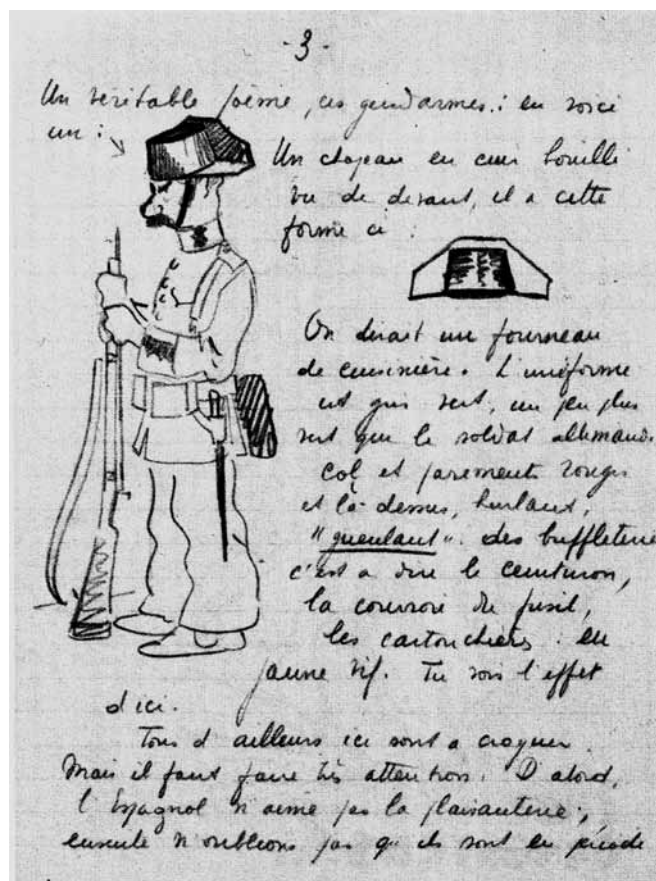 - 3 -
Un véritable poème, ces gendarmes : en voici
un :
Un chapeau en cuir bouilli
vu de devant, il a cette
forme ci :
On dirait un fourneau
de cuisinière. L'uniforme
est gris vert, un peu plus
vert que le soldat allemand.
Col et parements rouges
et là-dessus, hurlant,
"gueulant" des buffleterie
c'est a dire le ceinturon,
la courroie du fusil,
les cartouchières en
jaune vif. Tu vois l'effet
d ici.
Tous d ailleurs ici sont a croquer.
Mais il faut faire très attention. D abord,
l'Espagnol n'aime pas la plaisanterie ;
ensuite n'oublions pas qu ils sont en période